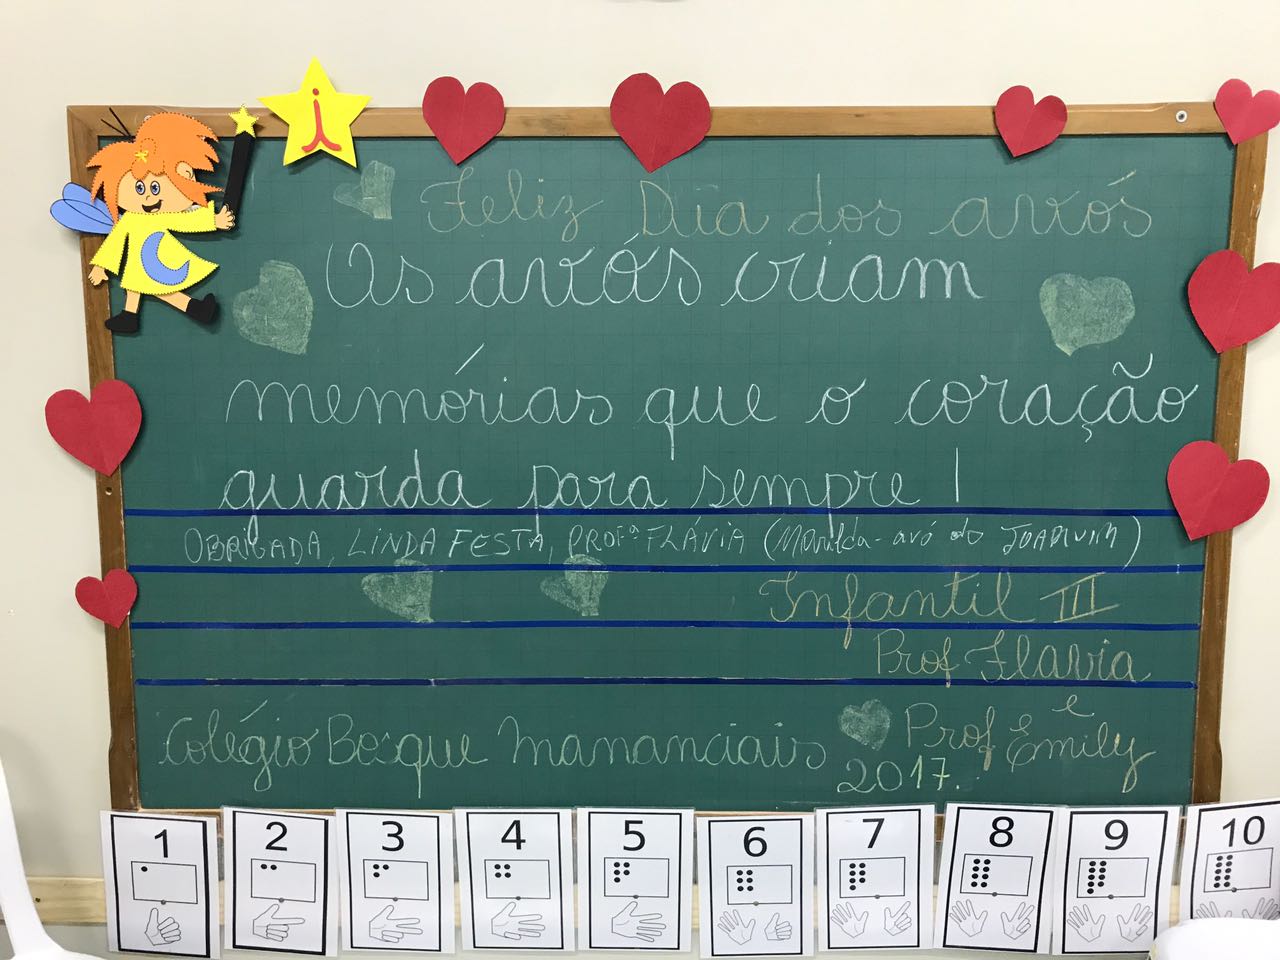 i
Feliz Dia dos avós
Os avós criam
memórias que o coração
guarda para sempre!
OBRIGADA, LINDA FESTA, PROFª FLÁVIA (Marilda - avó do JOAQUIM)
Infantil III
Prof Flavia
e
Colégio Bosque Mananciais Prof Emily
2017.
1 2 3 4 5 6 7 8 9 10